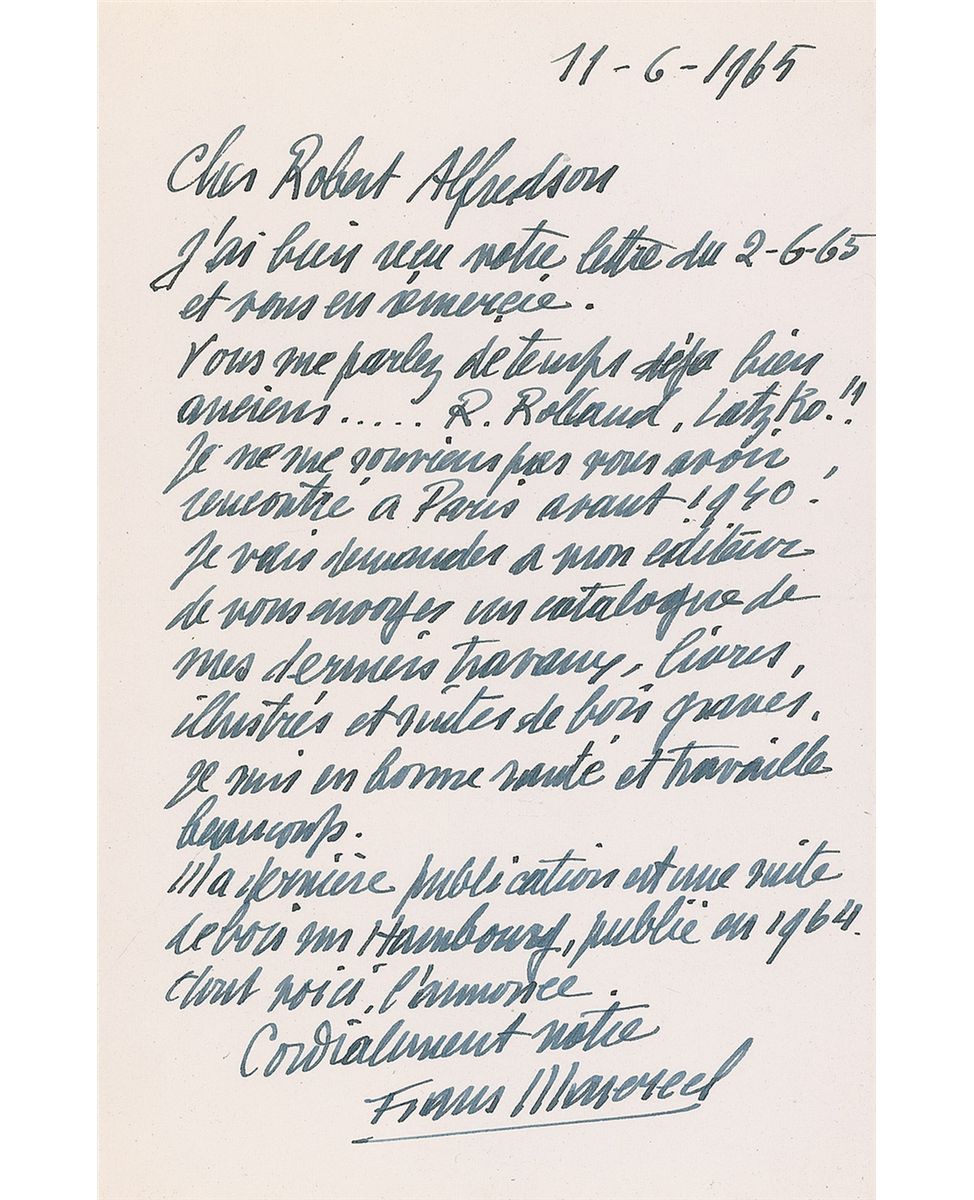 11-6-1965
Cher Robert Alfredson
J'ai bien reçu votre lettre du 2-6-65
et vous en remercie.
Vous me parlez de temps déjà bien
anciens..... R. Rolland, Latzko.!!
Je ne me souviens pas vous avoir
rencontré a Paris avant 1940!
Je vais demander a mon éditeur
de vous envoyer un catalogue de
mes derniers travaux, livres,
illustrés et suites de bois gravés.
je suis en bonne santé et travaille
beaucoup.
Ma dernière publication est une suite
de bois sur Hambourg, publié en 1964.
dont voici, l'annonce.
Cordialement votre
Frans Masereel